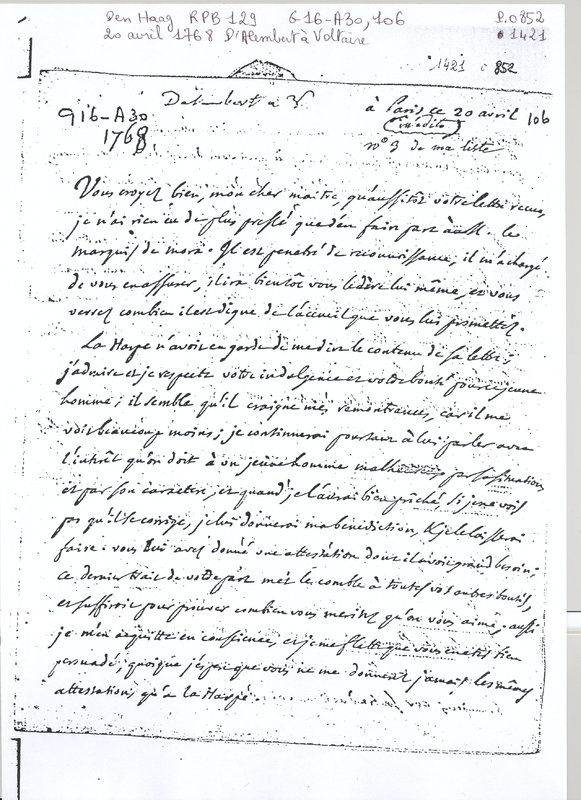 Den Haag RPB 129 G16-A30, 106 P.0852
20 avril 1768 D'Alembert à Voltaire 1421
1421 852
G16-A30
1768
Dalembert a V.
à Paris ce 20 avril 106
(inédite)
n° 3 de ma liste
Vous croyez bien, mon cher maitre, qu'aussitôt votre lettre recue,
je n'ai rien eu de plus pressé que d'en faire part à M. le
marquis de mora. Il est penetré de reconnoissance, il m'a chargé
de vous en assurer, il ira bientôt vous le dire lui même, et vous
verrez combien il est digne de l'accueil que vous lui promettez.
La Harpe n'avoit eu garde de me dire le contenu de sa lettre;
j'admire et je respecte votre indulgence et votre bonté pour ce jeune
homme; il semble qu'il craigne mes remontrances, car il me
voit beaucoup moins; je continuerai pourtant à lui parler avec
l'intérêt qu'on doit à un jeune homme malheureux par sa situation,
et par son caractere, et quand je l'aurai bien prêché, si je ne vois
pas qu'il se corrige, je lui donnerai ma benediction, & je le laisserai
faire: vous lui avez donné une attestation dont il avoit grand besoin;
ce dernier trait de votre part met le comble à toutes vos autres bontés,
et suffiroit pour prouver combien vous meritez qu'on vous aime, aussi
je m'en acquitte en conscience, et je me flatte que vous en etes bien
persuadé; quoique j'espere que vous ne me donnerez jamais les mêmes
attestations qu'à la Harpe.